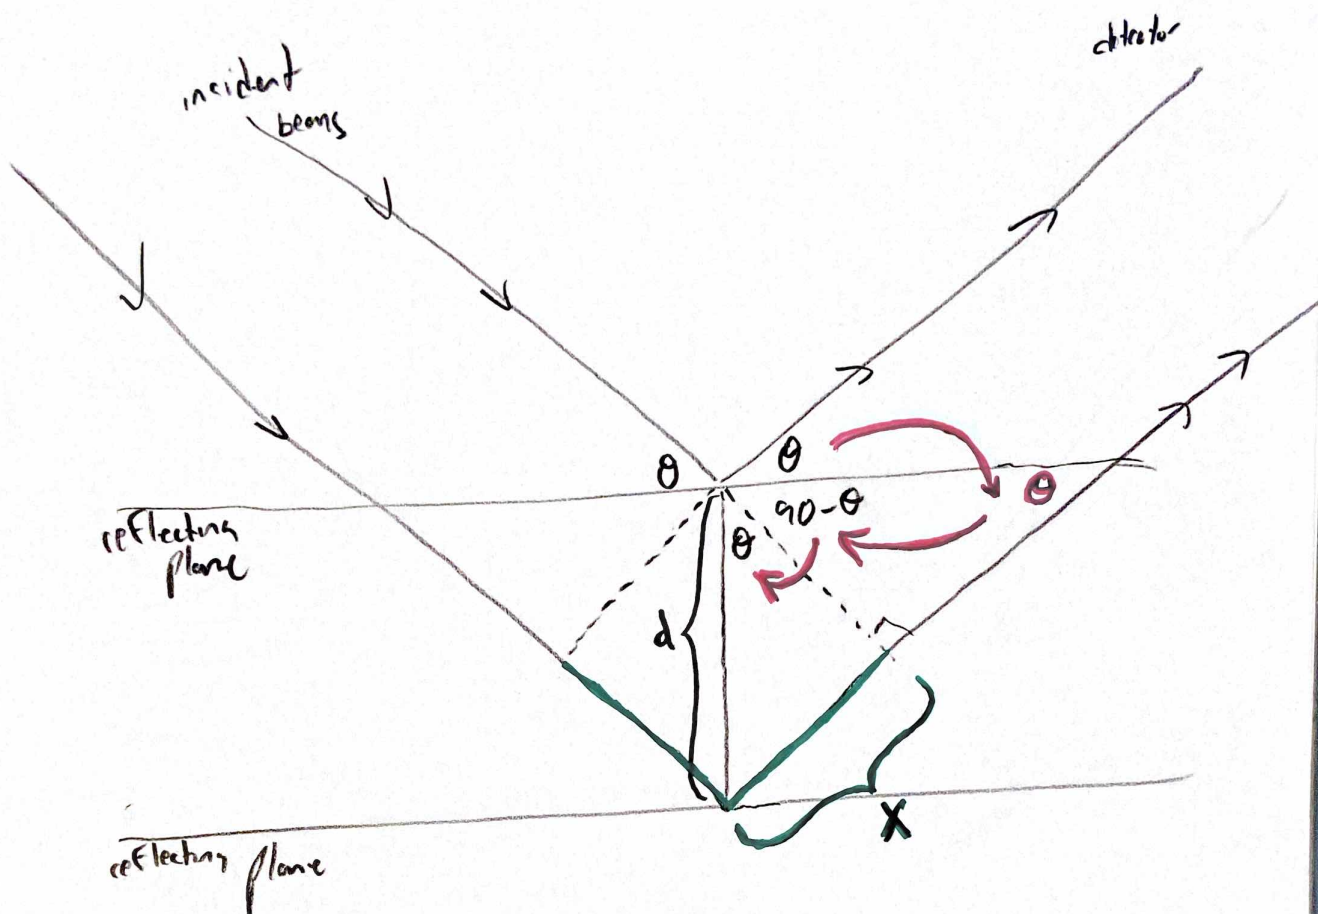 incident
beams
detector
θ
θ
θ
90-θ
θ
reflecting
plane
d
X
reflecting plane